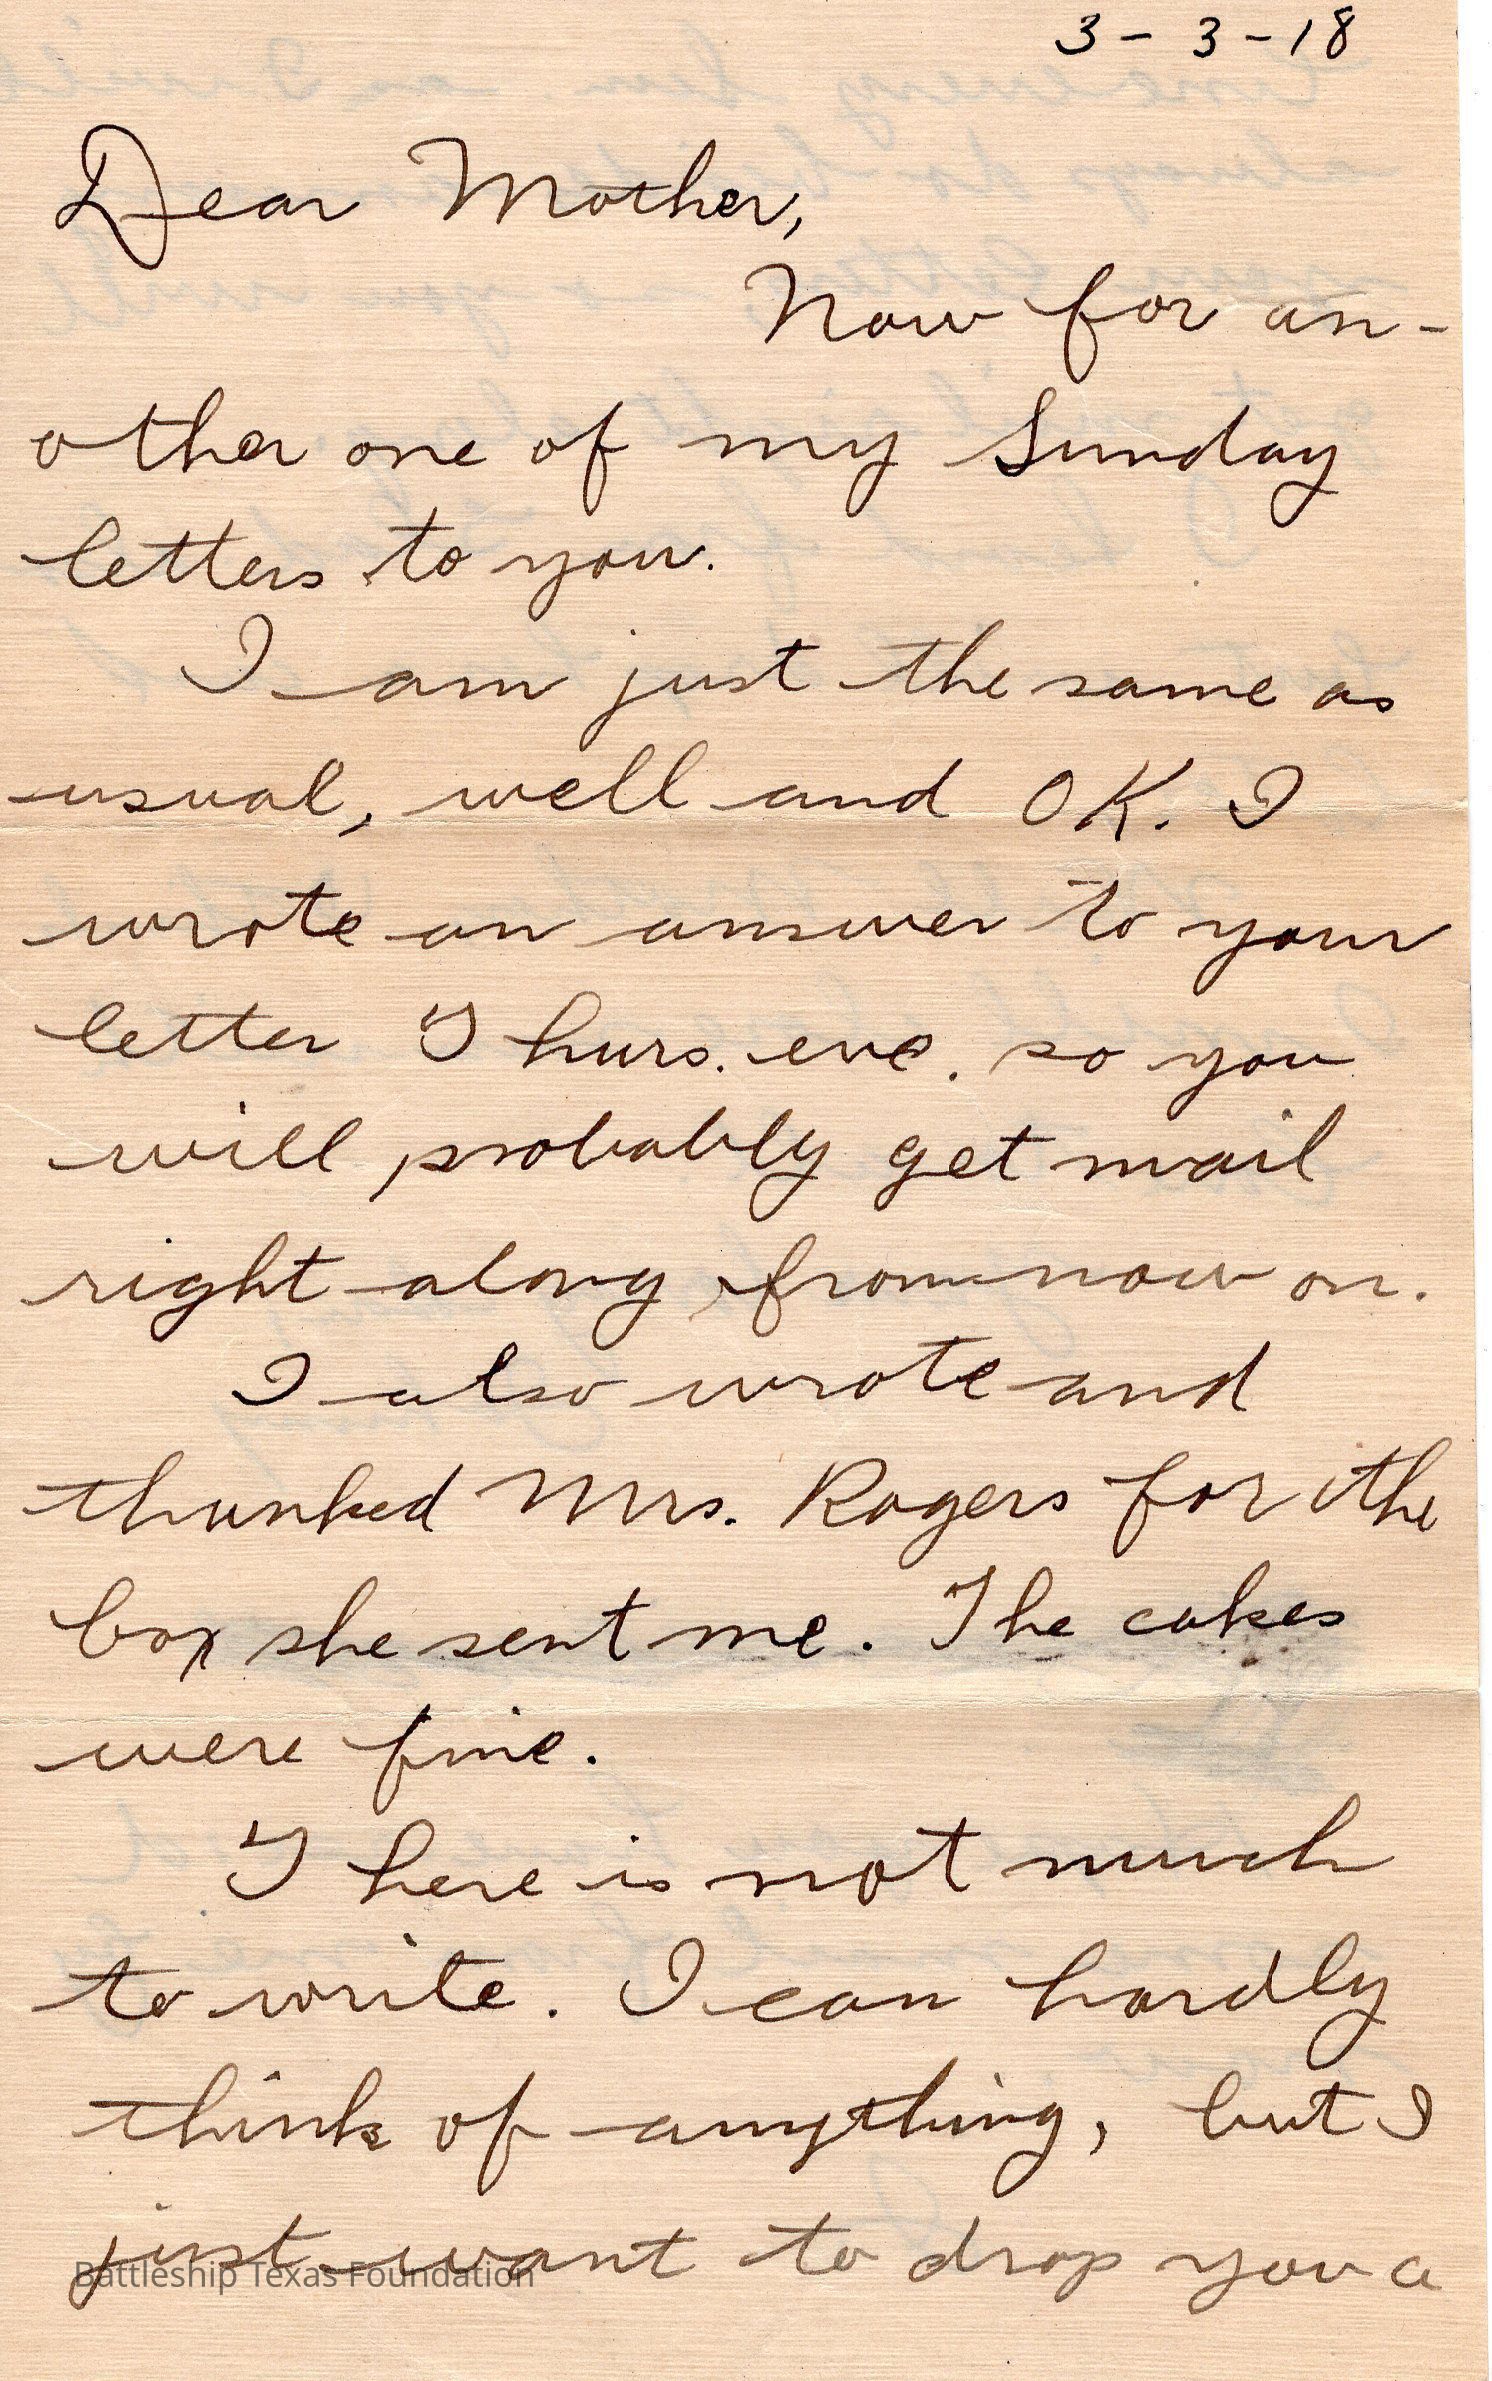 3-3-18
Dear Mother,
Now for an-
other one of my Sunday
letters to you.
I am just the same as
usual, well and OK. I
wrote an answer to your
letter Thurs. eve. so you
will probably get mail
right along from now on.
I also wrote and
thanked Mrs. Rogers for the
box she sent me. The cakes
were fine.
There is not much
to write. I can hardly
think of anything, but I
just want to drop you a
Battleship Texas Foundation